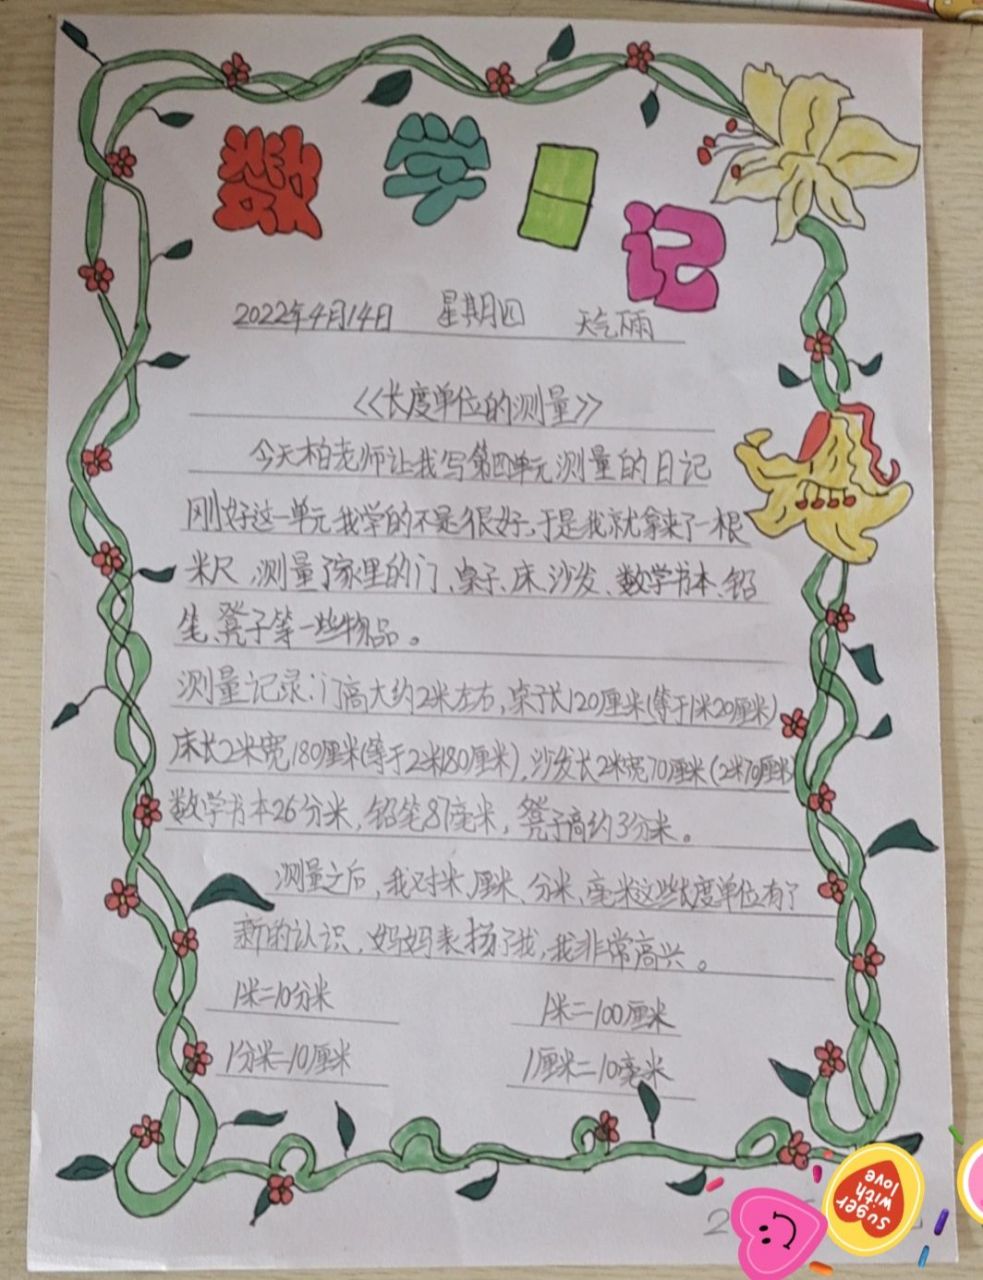 数学日记
2022年4月14日 星期四 天气雨
《长度单位的测量》
今天柏老师让我写第四单元测量的日记
刚好这一单元我学的不是很好,于是我就拿来了一根
米尺,测量了家里的门、桌子、床、沙发、数学书本、铅
笔、凳子等一些物品。
测量记录:门高大约2米左右,桌子长120厘米(等于1米20厘米)
床长2米宽180厘米(等于2米180厘米),沙发长2米宽70厘米(2米70厘米)
数学书本26分米,铅笔87毫米,凳子高约3分米。
测量之后,我对米、厘米、分米、毫米这些长度单位有了
新的认识,妈妈表扬了我,我非常高兴。
1米=10分米 1米=100厘米
1分米=10厘米 1厘米=10毫米
suger
with
love